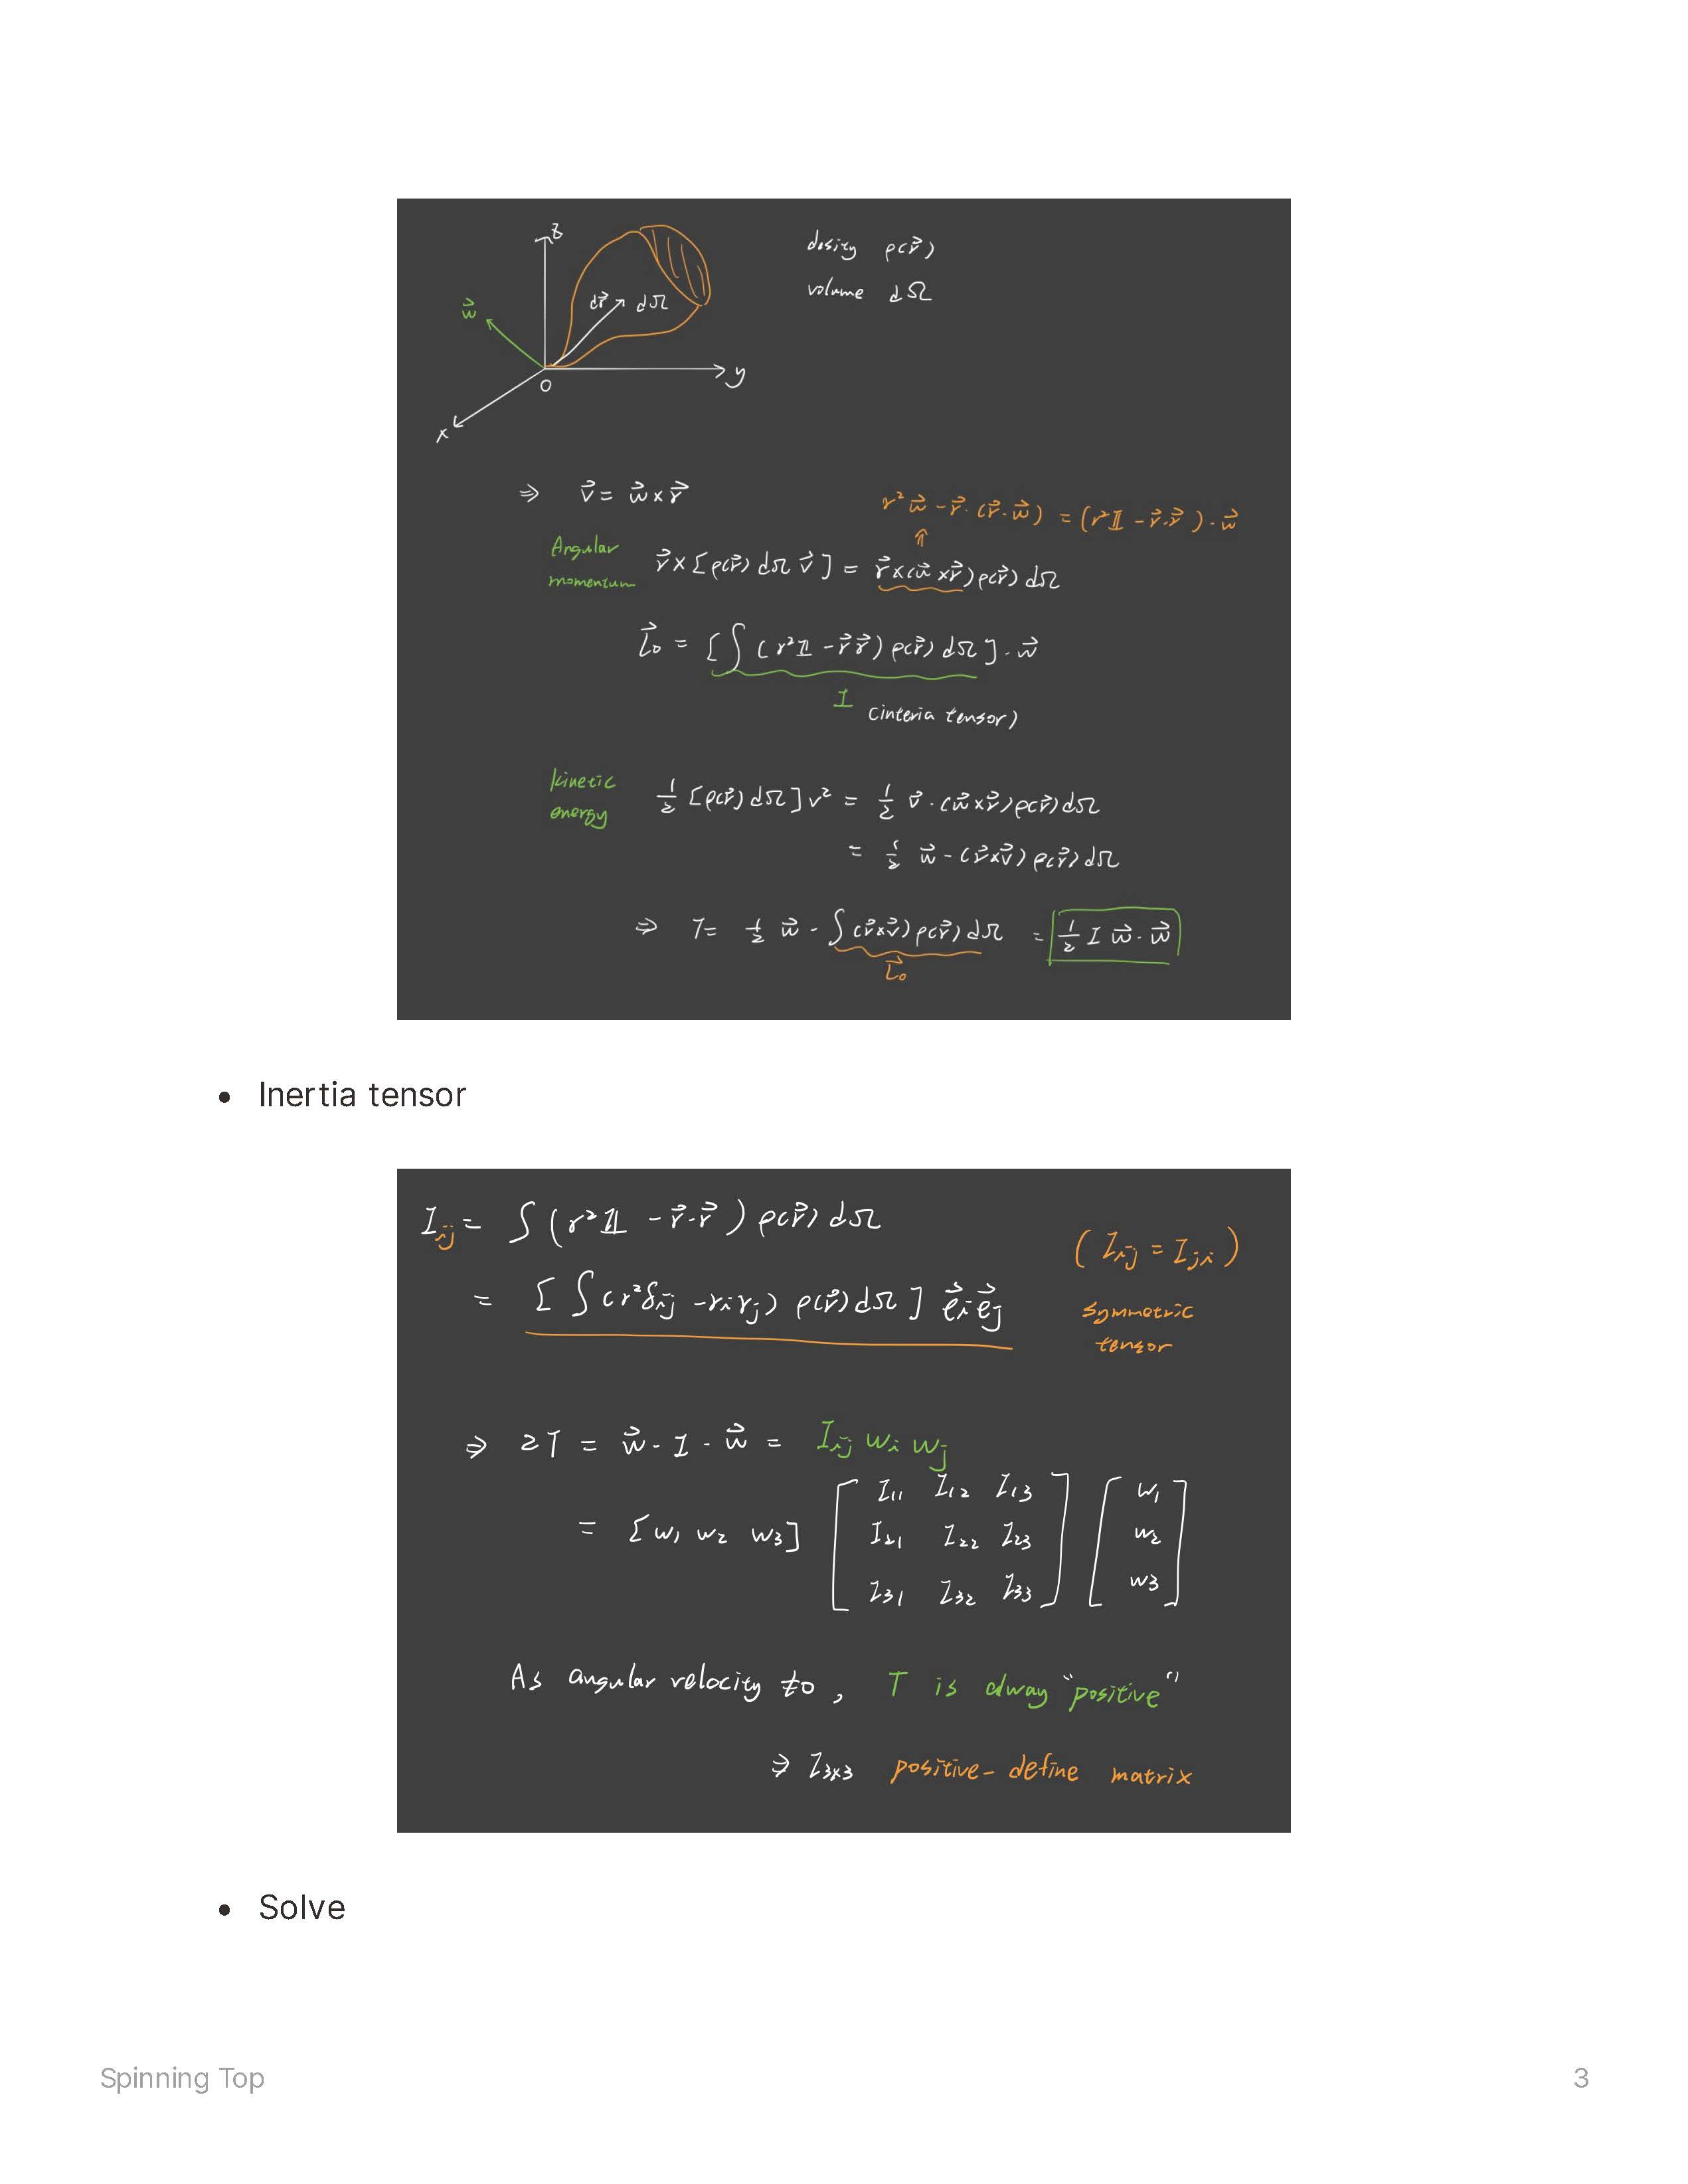 z
desity ρ(r⃗)
volume dΩ
w⃗
dr⃗ dΩ
y
o
x
⇒ v⃗ = w⃗ × r⃗
r² w⃗ - r⃗ · (r⃗ · w⃗) = (r² 𝟙 - r⃗·r⃗) · w⃗
⇑
Angular
momentum
r⃗ × [ρ(r⃗) dΩ v⃗] = r⃗ × (w⃗ × r⃗) ρ(r⃗) dΩ
L⃗₀ = [∫ (r² 𝟙 - r⃗ r⃗) ρ(r⃗) dΩ] · w⃗
I (interia tensor)
kinetic
energy
1/2 [ρ(r⃗) dΩ] v² = 1/2 v⃗ · (w⃗ × r⃗) ρ(r⃗) dΩ
= 1/2 w⃗ - (r⃗ × v⃗) ρ(r⃗) dΩ
⇒ T = 1/2 w⃗ - ∫ (r⃗ × v⃗) ρ(r⃗) dΩ = 1/2 I w⃗ · w⃗
L⃗₀
• Inertia tensor
I_ij = ∫ (r² 𝟙 - r⃗·r⃗) ρ(r⃗) dΩ
(I_ij = I_ji)
= [∫ (r² δ_ij - r_i r_j) ρ(r⃗) dΩ] e⃗_i e⃗_j
symmetric
tensor
⇒ 2T = w⃗ - I · w⃗ = I_ij w_i w_j
= [w₁ w₂ w₃] [I₁₁ I₁₂ I₁₃
I₂₁ I₂₂ I₂₃
I₃₁ I₃₂ I₃₃] [w₁
w₂
w₃]
As angular velocity ≠0, T is alway "positive"
⇒ I₃ₓ₃ positive-define matrix
• Solve
Spinning Top 3